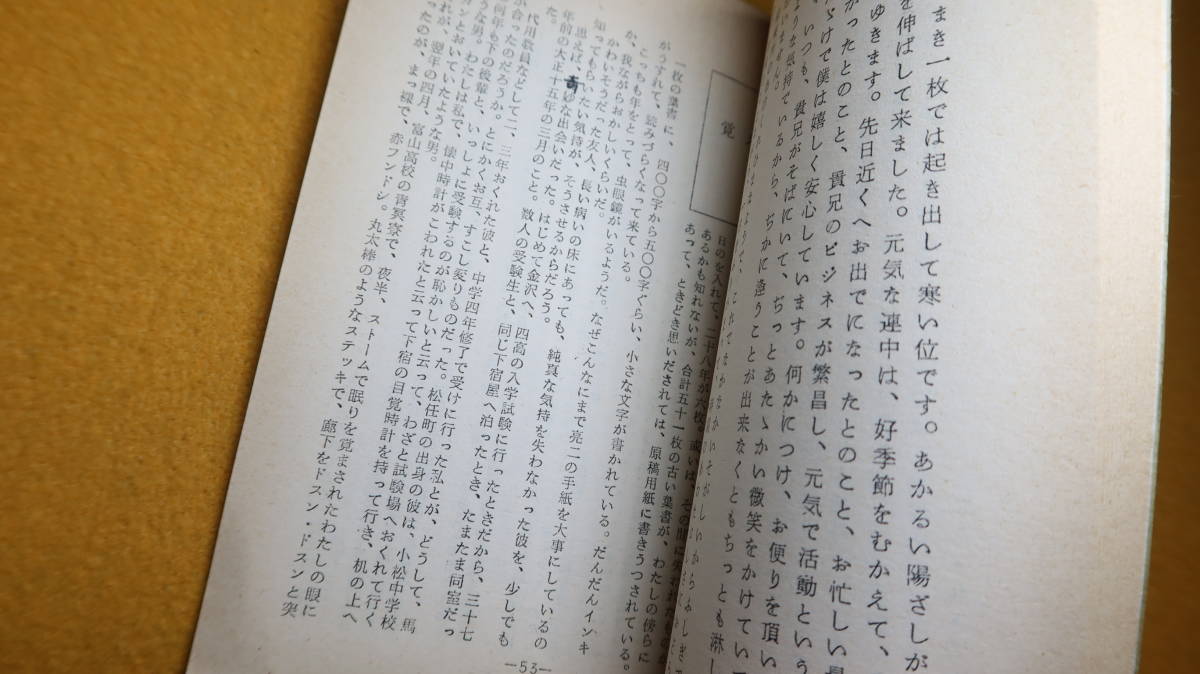 まき一枚では起き出して寒い位です。あかるい陽ざしが
を伸ばして来ました。元気な連中は、好季節をむかえて、
ゆきます。先日近くへお出でになったとのこと、お忙しい
かったとのこと、貴兄のビジネスが繁昌し、元気で活動という
ゞけで僕は嬉しく安心しています。何かにつけ、お便りを頂い
、いつも、貴兄がそばにいて、ぢっとあたゝかい微笑をかけてい
よりな気持でいるから、ぢかに逢うことが出来なくともちっとも淋し
いません。
覚
日のを入れて、二十八年が六枚。或いは、その間に失われたものが
あるかも知れないが、合計五十一枚の古い葉書が、わたしの傍らに
あって、ときどき思いだされては、原稿用紙に書きうつされている。
一枚の葉書に、四〇〇字から五〇〇字ぐらい、小さな文字が書かれている。だんだんインキ
がうすれて、読みづらくなって来ている。
こっちも年をとって、虫眼鏡がいるようだ。なぜこんなにまで亮二の手紙を大事にしているの
か、我ながらおかしいくらいだ。
かわいそうだった友人、長い病いの床にあっても、純真な気持を失わなかった彼を、少しでも
知ってもらいたい気持が、そうさせるからだろう。
思えば、奇妙な出会いだった。はじめて金沢へ、四高の入学試験に行ったときだから、三十七
年前の大正十五年の三月のこと。数人の受験生と、同じ下宿屋へ泊ったとき、たまたま同室だっ
た。
代用教員などして二、三年おくれた彼と、中学四年修了で受けに行った私とが、どうして、馬
が合ったのだろうか。とにかくお互、すこし変りものだった。松任町の出身の彼は、小松中学校
で何年も下の後輩と、いっしょに受験するのが恥かしいと云って、わざと試験場へおくれて行く
ような男。わたしは私で、懐中時計がこわれたと云って下宿の目覚時計を持って行き、机の上へ
オンとおいていたような男。
れが、翌年の四月、富山高校の青冥寮で、夜半、ストームで眠りを覚まされたわたしの眼に
ったのが、まっ裸で、赤フンドシ。丸太棒のようなステッキで、廊下をドスン・ドスンと突
—53—